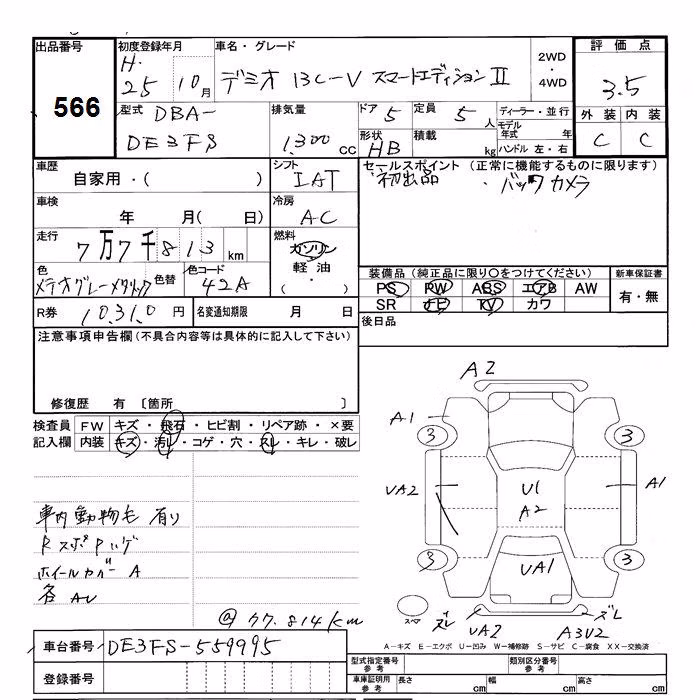 出品番号 初度登録年月 車名・グレード 2WD・4WD 評価点
566 H. 25 10月 デミオ 13C-V スマートエディションⅡ 3.5
型式 DBA- 排気量 ドア 5 定員 5人 ディーラー・並行 外装 内装
モデル年式 年
DE3FS 1,300 cc 形状 HB 積載 kg ハンドル 左・右 C C
車歴 シフト セールスポイント (正常に機能するものに限ります)
自家用・( ) IAT 初出品 ・バックカメラ
車検 冷房
年 月( 日) AC
走行 燃料
7万7千813km ガソリン
色 色替 色コード 軽油
メテオグレーメタリック 42A ・( )
装備品 (純正品に限り○をつけてください) 新車保証書
PS PW ABS エアB AW 有・無
SR ナビ TV カワ
R券 10,310円 名変通知期限 月 日 後日品
注意事項申告欄 (不具合内容等は具体的に記入して下さい)
修復歴 有 〔箇所 〕
検査員 FW キズ・飛石・ヒビ割・リペア跡・×要
記入欄 内装 キズ・汚レ・コゲ・穴・スレ・キレ・破レ
A2
A1
3 3
UA2 U1 A1
A2
3 3
UA1
スペア ズレ UA2 A3U2 ズレ
車内動物毛有り
RスポPハゲ
ホイールカバー A
各AU
@77.814km
A－キズ E－エクボ U－凹み W－補修跡 S－サビ C－腐食 XX－交換済
車台番号 DE3FS-559995
登録番号
型式指定番号 参考 類別区分番号 参考
車庫証明用 参考 長さ cm 幅 cm 高さ cm